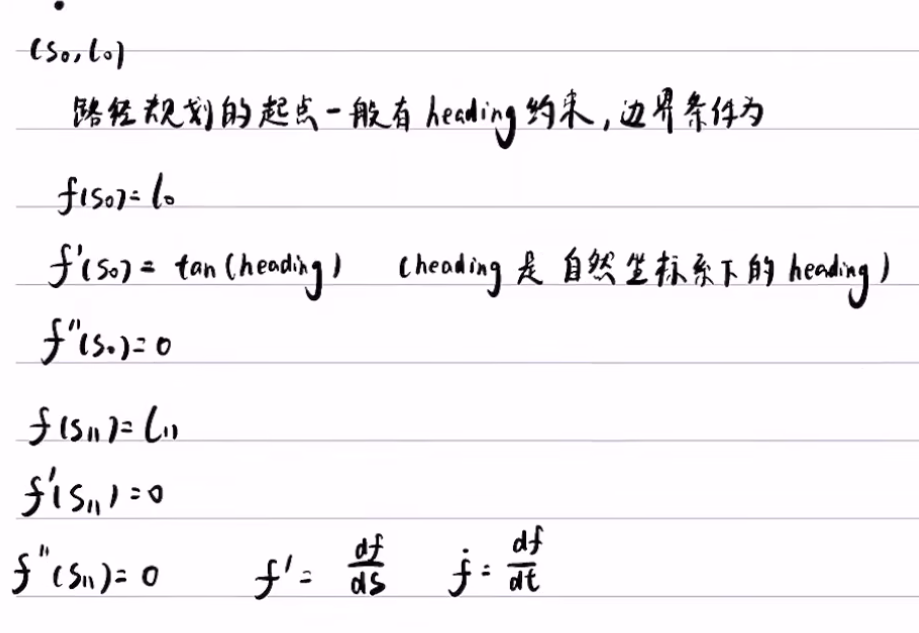 (s₀, l₀)
路径规划的起点一般有 heading 约束, 边界条件为
f(s₀) = l₀
f'(s₀) = tan(heading) (heading 是 自然坐标系下的 heading)
f''(s₀) = 0
f(s₁₁) = l₁₁
f'(s₁₁) = 0
f''(s₁₁) = 0 f' = df/ds ḟ = df/dt